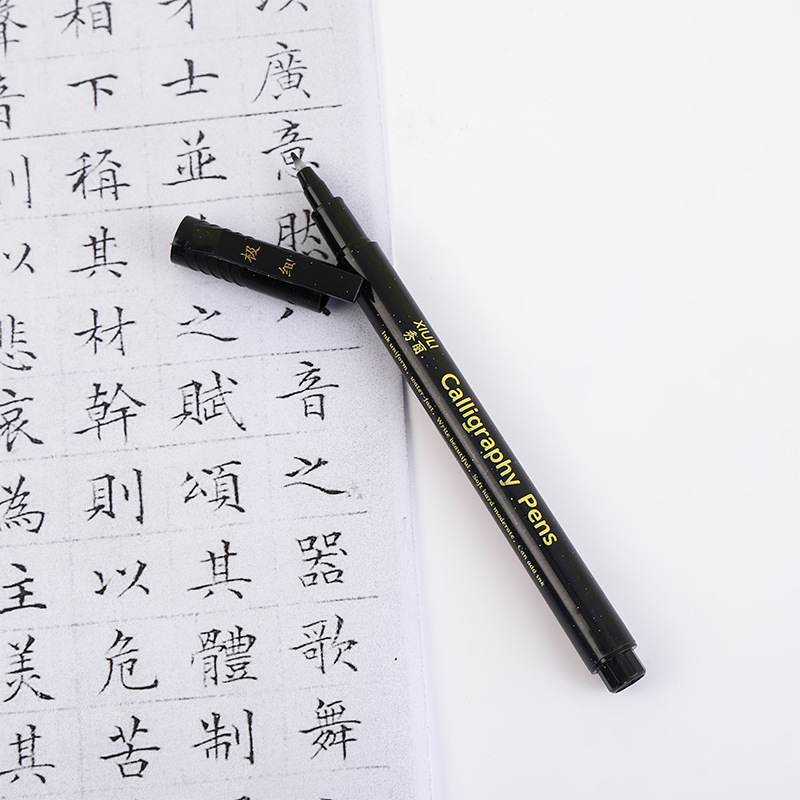 廣意然音之器歌舞
才士並之賦頌其體制
相下稱其材幹則以危苦
聲音則以悲哀為主美其
极细
XIULI
秀丽
Calligraphy Pens
Ink uniform, water-fast, Write beautiful, Soft hard moderate, Can add ink